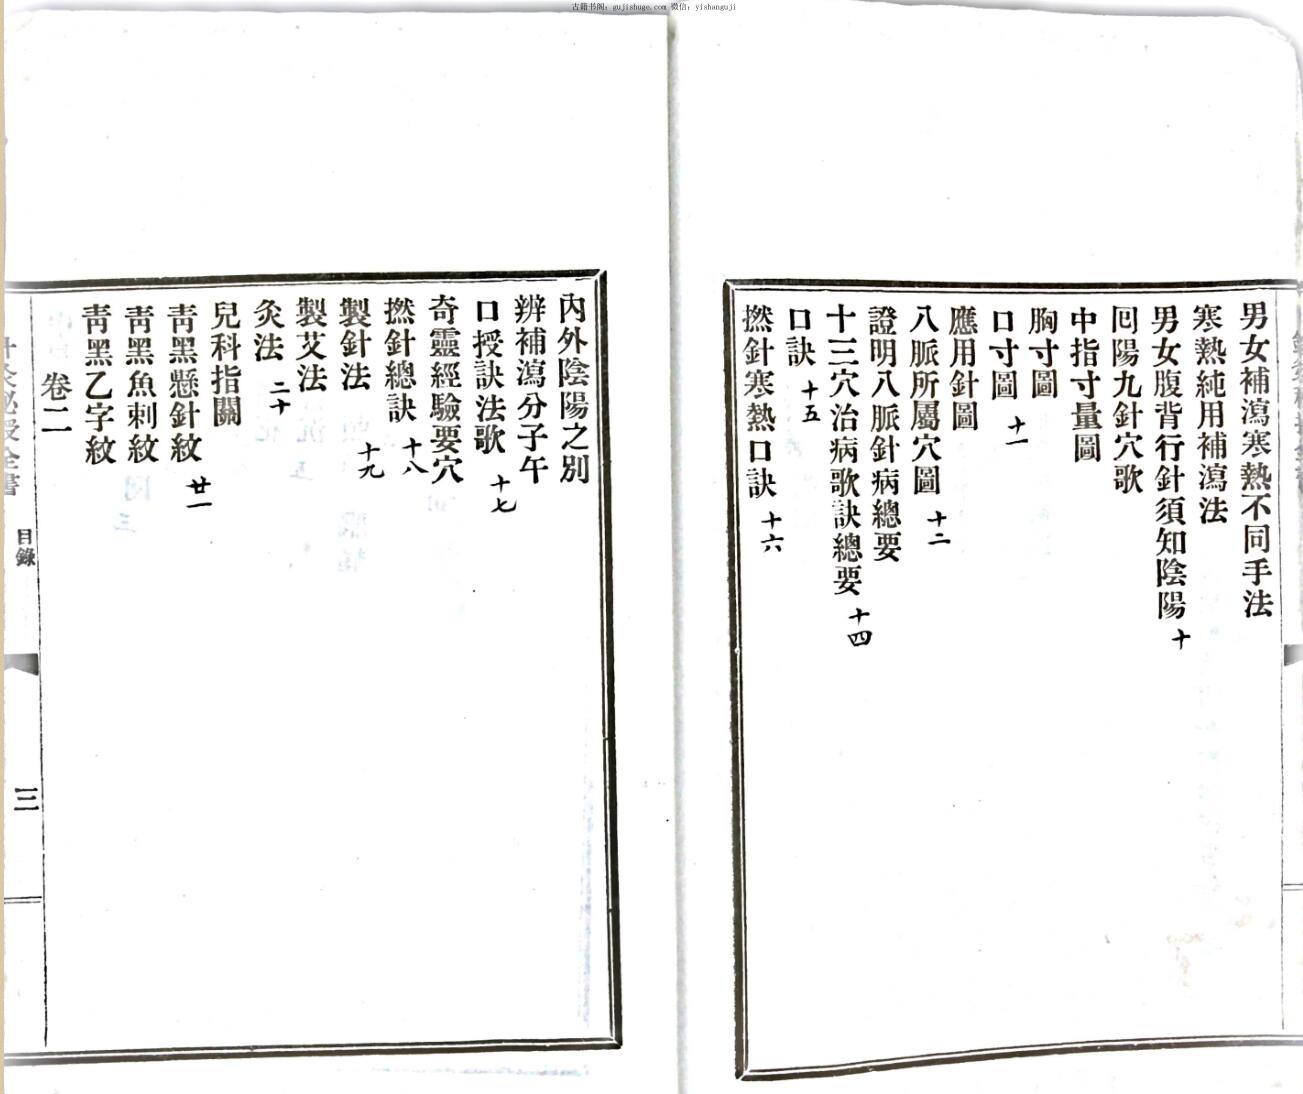 古籍书阁：gujishuge.com 微信：yishanguji
男女補瀉寒熱不同手法
寒熱純用補瀉法
男女腹背行針須知陰陽 十
囘陽九針穴歌
中指寸量圖
胸寸圖
口寸圖 十一
應用針圖
八脈所屬穴圖 十二
證明八脈針病總要
十三穴治病歌訣總要 十四
口訣 十五
撚針寒熱口訣 十六
內外陰陽之別
辨補瀉分子午
口授訣法歌 十七
奇靈經驗要穴
撚針總訣 十八
製針法 十九
製艾法
灸法 二十
兒科指關
靑黑懸針紋 廿一
靑黑魚刺紋
靑黑乙字紋
卷二
目錄
三